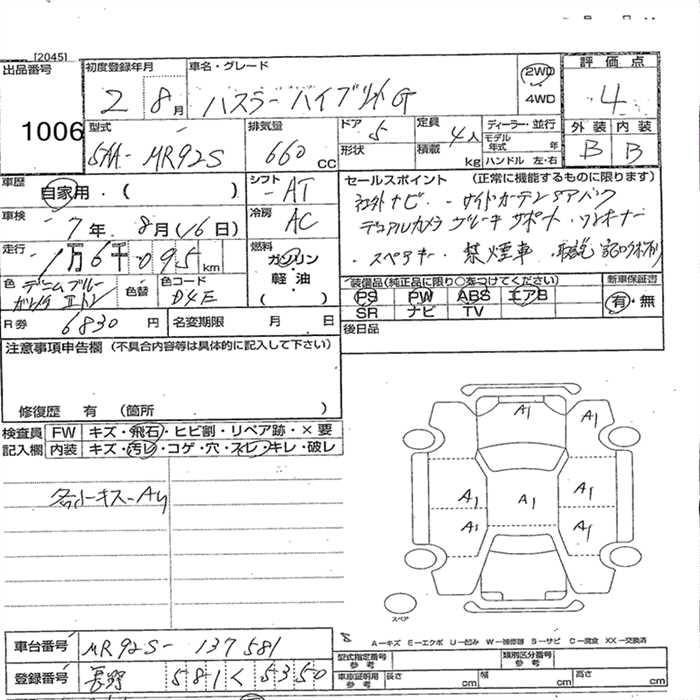 [2045]
出品番号 初度登録年月 車名・グレード 2WD 4WD 評価点
1006 2 8月 ハスラーハイブリッドG 4
型式 排気量 ドア 定員 ディーラー・並行 外装 内装
5AA-MR92S 660 CC 5 4人 モデル年式 年 B B
形状 積載 kg ハンドル 左・右
車歴 自家用・( ) シフト AT セールスポイント (正常に機能するものに限ります)
車検 7年 8月(16日) 冷房 AC 社外ナビ・サイドカーテンエアバック
デュアルカメラブレーキサポート・ワンオーナー
走行 1万6千095km 燃料 ガソリン 軽油 ・スペアキー 禁煙車 取説
色 デニムブルー ガンメタ Ⅱトン 色替 色コード D4E 装備品(純正品に限り○をつけてください) 新車保証書
PS PW ABS エアB 有・無
SR ナビ TV
R券 6830円 名変期限 月 日 後日品
注意事項申告欄 (不具合内容等は具体的に記入して下さい)
修復歴 有 (箇所 )
検査員 FW キズ・飛石・ヒビ割・リペア跡・×要
記入欄 内装 キズ・汚レ・コゲ・穴・スレ・キレ・破レ
A1 A1
A1 A1 A1
A1 A1
スペア
A-キズ E-エクボ U-凹み W-補修跡 S-サビ C-腐食 XX-交換済
車台番号 MR92S-137581
型式指定番号 参考 類別区分番号 参考
登録番号 長野 581 く 5350
車庫証明用 参考 長さ cm 幅 cm 高さ cm